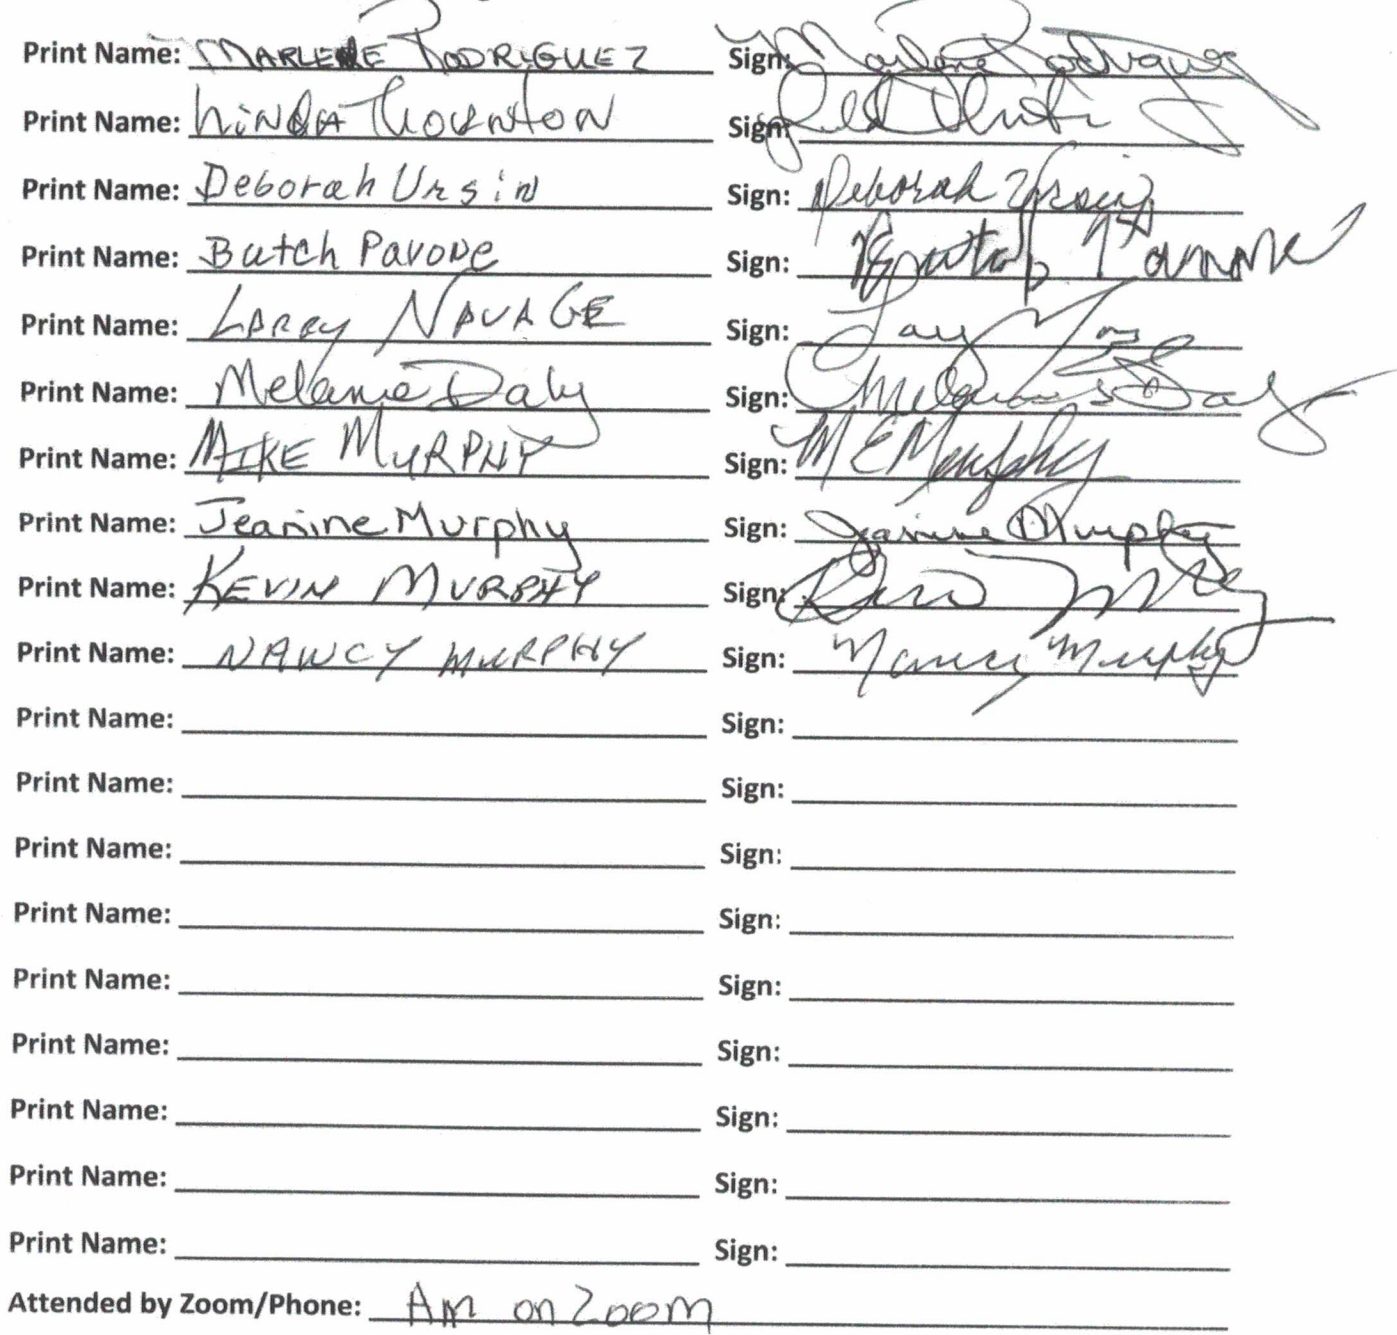 Print Name: MARLENE RODRIGUEZ Sign: Marlene Rodriguez
Print Name: LINDA THORNTON Sign:
Print Name: Deborah Ursin Sign: Deborah Ursin
Print Name: Butch Pavone Sign: Butch Pavone
Print Name: LARRY NAVAGE Sign:
Print Name: Melanie Daly Sign: Melanie Daly
Print Name: MIKE MURPHY Sign: M E Murphy
Print Name: Jeanine Murphy Sign: Jeanine Murphy
Print Name: KEVIN MURPHY Sign:
Print Name: NANCY MURPHY Sign: Nancy Murphy
Print Name: Sign:
Print Name: Sign:
Print Name: Sign:
Print Name: Sign:
Print Name: Sign:
Print Name: Sign:
Print Name: Sign:
Print Name: Sign:
Print Name: Sign:
Attended by Zoom/Phone: Am on Zoom